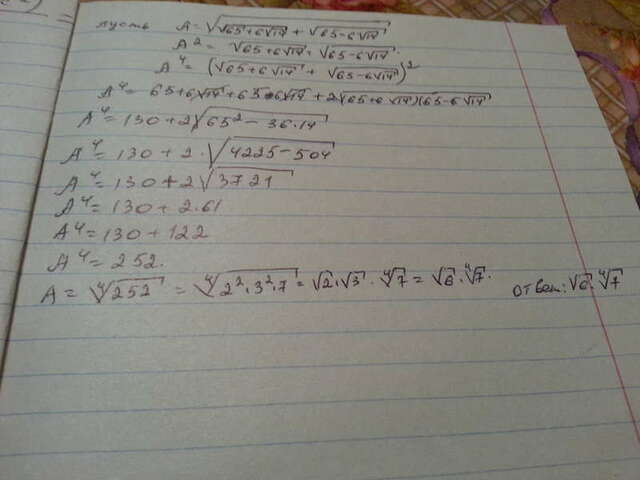 пусть A = √(√(65+6√14) + √(65-6√14))
A² = √(65+6√14) + √(65-6√14).
A⁴ = (√(65+6√14) + √(65-6√14))²
A⁴ = 65+6√14+65-6√14 + 2√(65+6√14)(65-6√14)
A⁴ = 130+2√(65² - 36·14)
A⁴ = 130 + 2·√(4225-504)
A⁴ = 130 + 2√3721
A⁴ = 130 + 2·61
A⁴ = 130 + 122
A⁴ = 252.
A = ⁴√252 = ⁴√(2²·3²·7) = √2·√3·⁴√7 = √6·⁴√7. ответ: √6·⁴√7